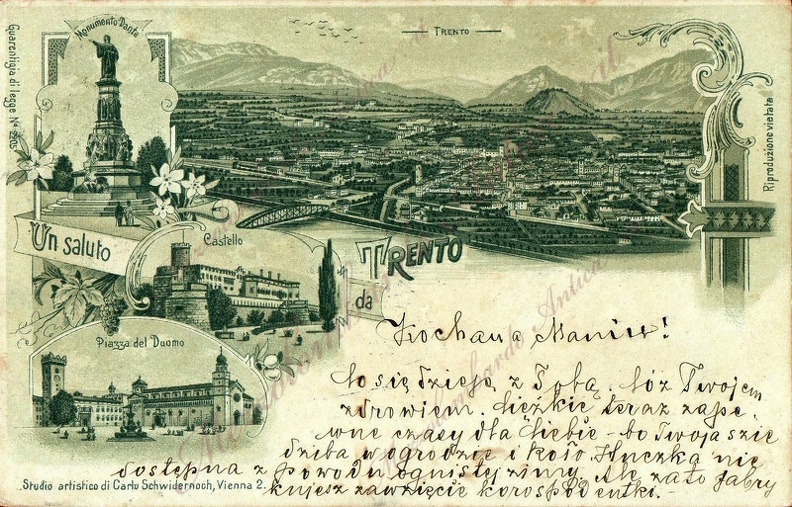 Monumento Dante
Guarentigia di legge No
TRENTO
Riproduzione vietata
Un saluto
Castello
da
TRENTO
Piazza del Duomo
Kochana Maniu!
Co się dzieje z Tobą. Cóż z Twojem
zdrowiem. Ciężkie teraz zape
wne czasy dla Ciebie - bo Twoja
w ogrodzie i koło nie
dostępna z powodu zimy. Ale zato fabry
kujesz zawzięcie korespodentki.
Studio artistico di Carlo Schwidernoch, Vienna 2.